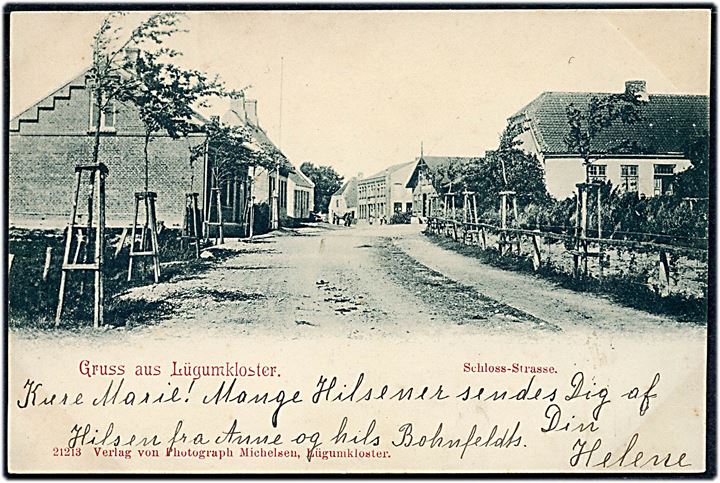 Gruss aus Lügumkloster.
Schloss-Strasse.
Kære Marie! Mange Hilsener sendes Dig af
Din
Hilsen fra Anne og hils Bohnfeldts.
Helene
21213 Verlag von Photograph Michelsen, Lügumkloster.